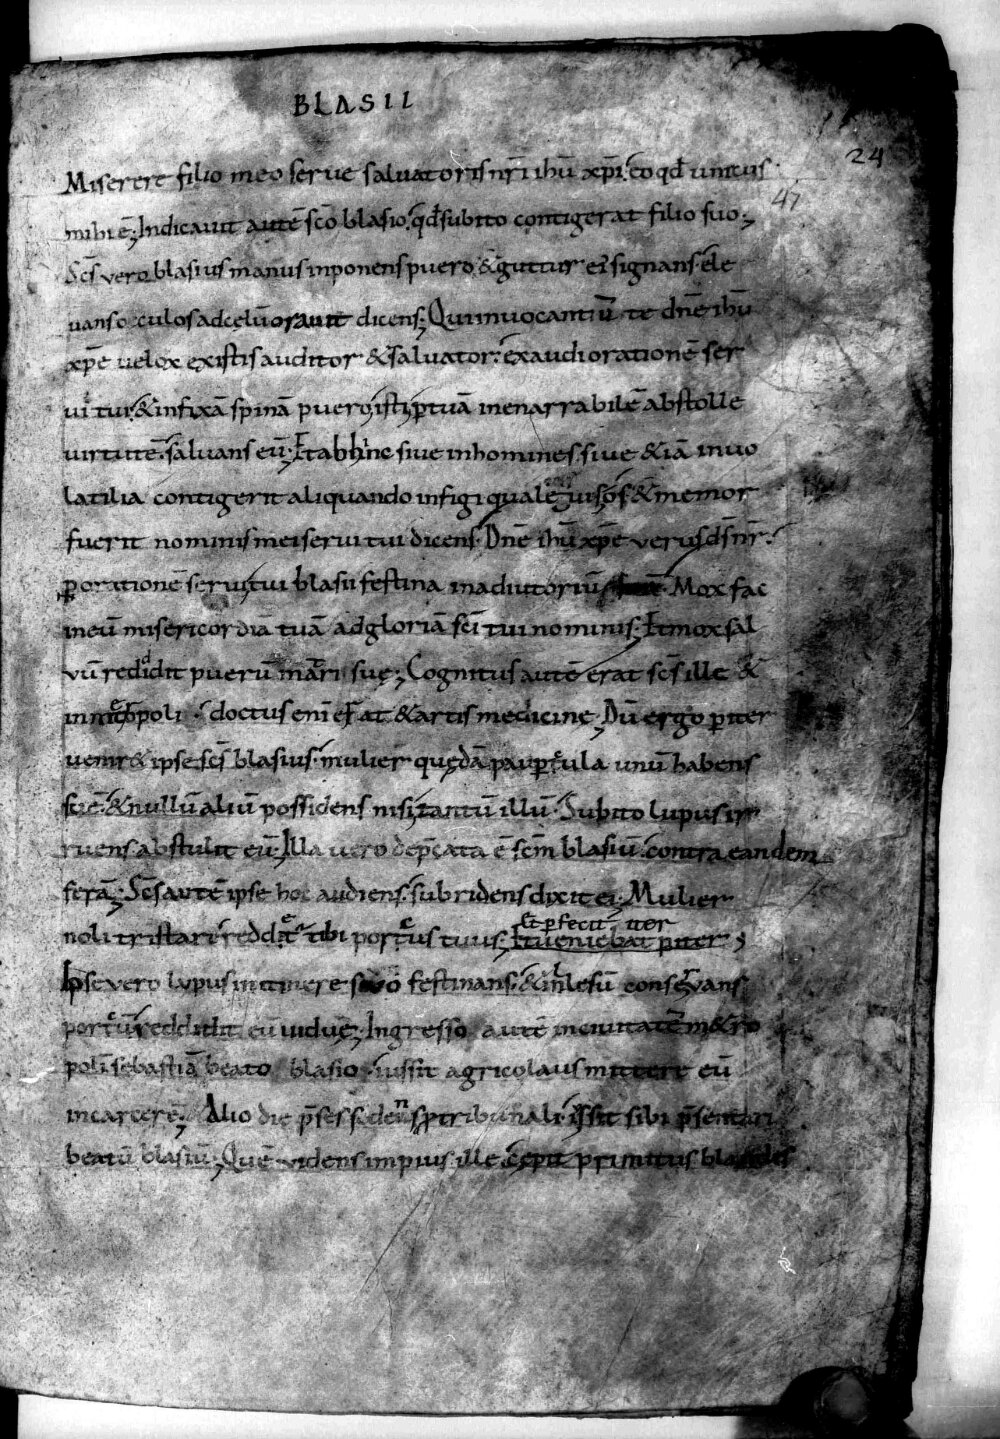 BLASII
24
47
Miserere filio meo serve salvatoris nr̄i ihū xp̄i. eo qd̄ unicus
mihi ē; Indicavit autē scō blasio. qd̄ subito contigerat filio suo;
Scs̄ vero blasius manus inponens puero & guttur ei signans. ele
vans oculos ad celū oravit dicens; Qui invocantiū te dnē ihū
xp̄e velox existis auditor & salvator. exaudi orationē ser
vi tui. & infixā spinā puero isti p̄ tuā inenarrabilē abstolle
virtutē. salvans eū; Et abhinc sive in homines. sive &iā in vo
latilia contigerit aliquando infigi & memor
fuerit nominis mei servi tui dicens. Dnē ihū xp̄e verus ds̄ nr̄.
p̄ orationē servi tui blasii festina in adiutoriū Mox fac
in eū misericordiā tuā ad gloriā sci tui nominis; Et mox sal
vū reddidit puerū matri suę; Cognitus autē erat scs̄ ille &
in doctus enī erat & artis medicinę; Dū ergo pariter
venir& ipse scs̄ blasius. mulier quędā paup̄cula unū habens
suē. & nullū aliū possidens nisi tantū illū. Subito lupus ir
ruens abstulit eū; Illa vero dep̄cata ē scm̄ blasiū. contra eandem
ferā; Scs̄ autē ipse hoc audiens. subridens dixit ei; Mulier
noli tristari redd& tibi porcus tuus;
Ipse vero lupus in itinere suo festinans. & inlesū conservans
porcū reddidit eū viduę; Ingresso autē in civitatē m&ro
polī sebastiā beato blasio. iussit agricolaus mittere eū
in carcerē; Alio die p̄ses sedens p̄ tribunali iussit sibi p̄sentari
beatū blasiū; Quē videns impius ille cępit primitus blandis